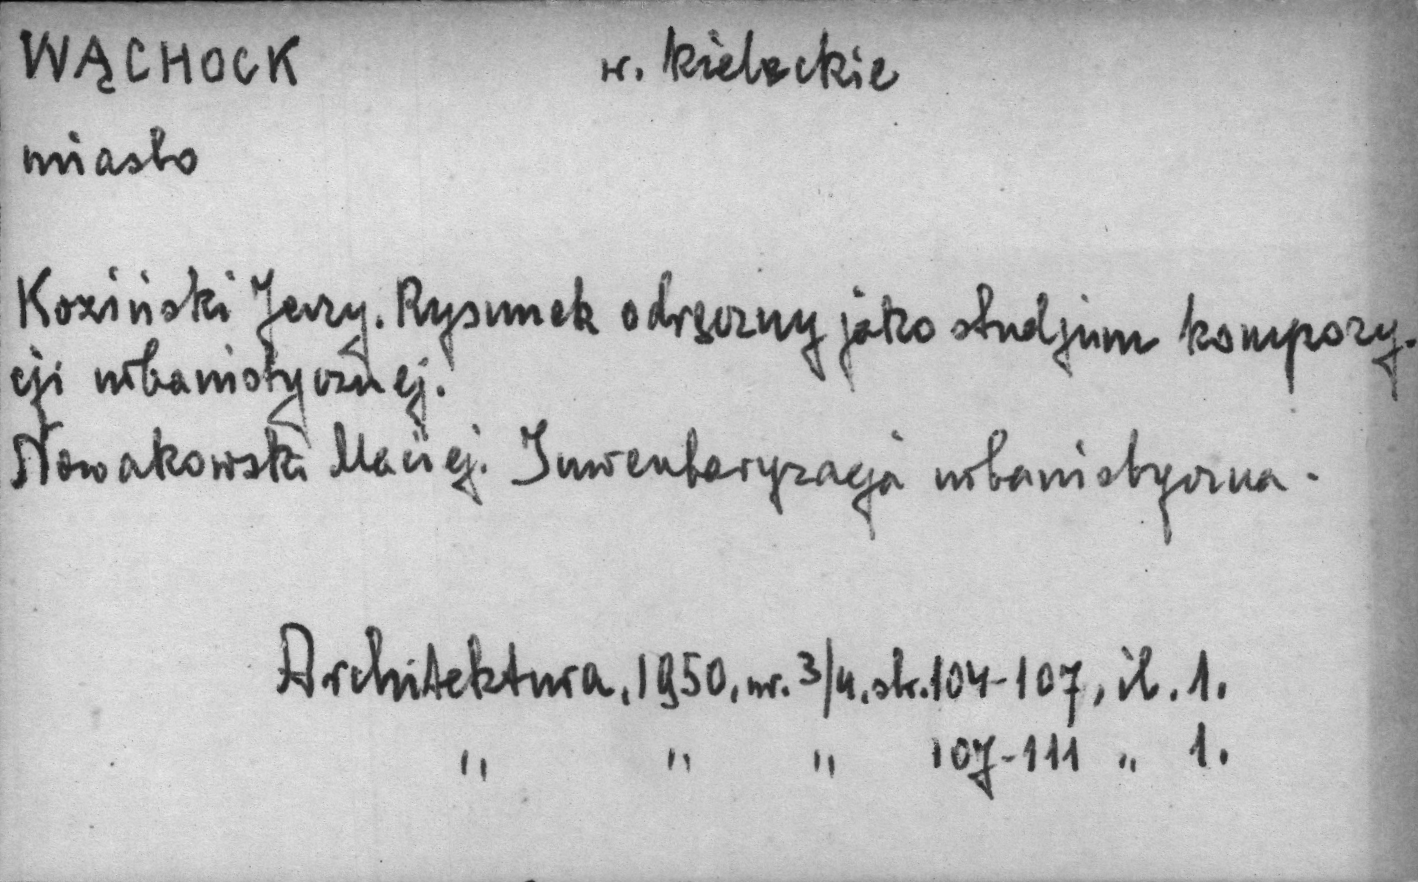 WĄCHOCK w. kieleckie
miasto
Koziński Jerzy. Rysunek odręczny jako studjum kompozy-
cji urbanistycznej.
Nowakowski Maciej. Inwentaryzacja urbanistyczna.
Architektura, 1950, nr. 3/4, str. 104-107, il. 1.
" " " 107-111 " 1.